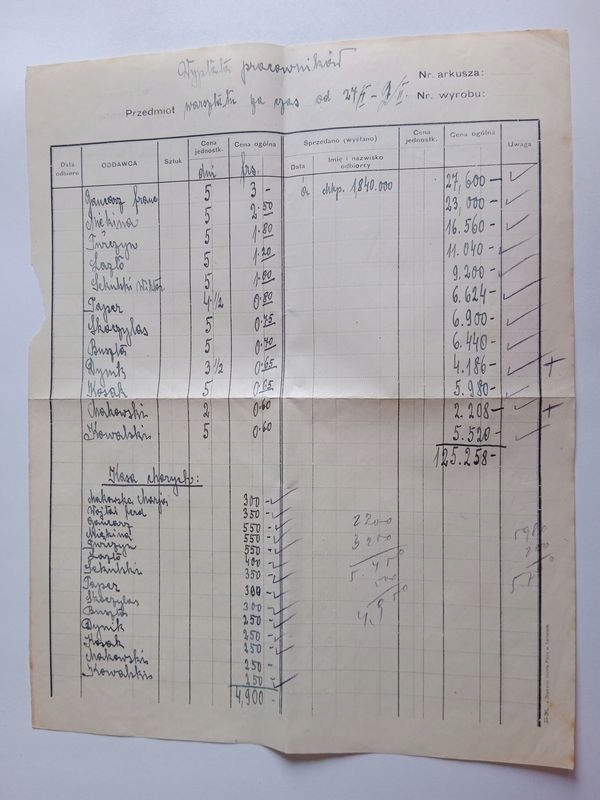 Wypłata pracowników
Nr. arkusza:
Przedmiot warsztatu za czas od 27/I - /II. Nr. wyrobu:
Data odbioru ODDAWCA Sztuk Cena jednostk. Cena ogólna Sprzedano (wysłano) Cena jednostk. Cena ogólna Uwaga
dni frs. Data Imię i nazwisko odbiorcy
Gancarz franc 5 3 - à chkp. 1840.000 27,600 -
Miękina 5 2.50 23,000 -
5 1.80 16.560 -
Łaszło 5 1.20 11.040 -
Sekulski Wiktor 5 1.00 9.200 -
Paper 4 1/2 0.80 6.624 -
Skoczylas 5 0.75 6.900 -
Buszta 5 0.70 6.440 -
Dynik 3 1/2 0.65 4.186 - +
Kosak 5 0.65 5.980 -
Makowski 2 0.60 2.208 - +
Kowalski 5 0.60 5.520 -
125.258 -
Kasa chorych:
Makowska Marja 300 -
Wojtal ferd 350 -
Gancarz 550 -
Miękina 550 -
550 -
Łaszło 400 -
Sekulski 350 -
Paper 300 -
Skoczylas 300 -
Buszta 250 -
Dynik 250 -
Kosak 250 -
Makowski 250 -
Kowalski 250 -
4,900 -
2200
3250
5.450
500
4,950